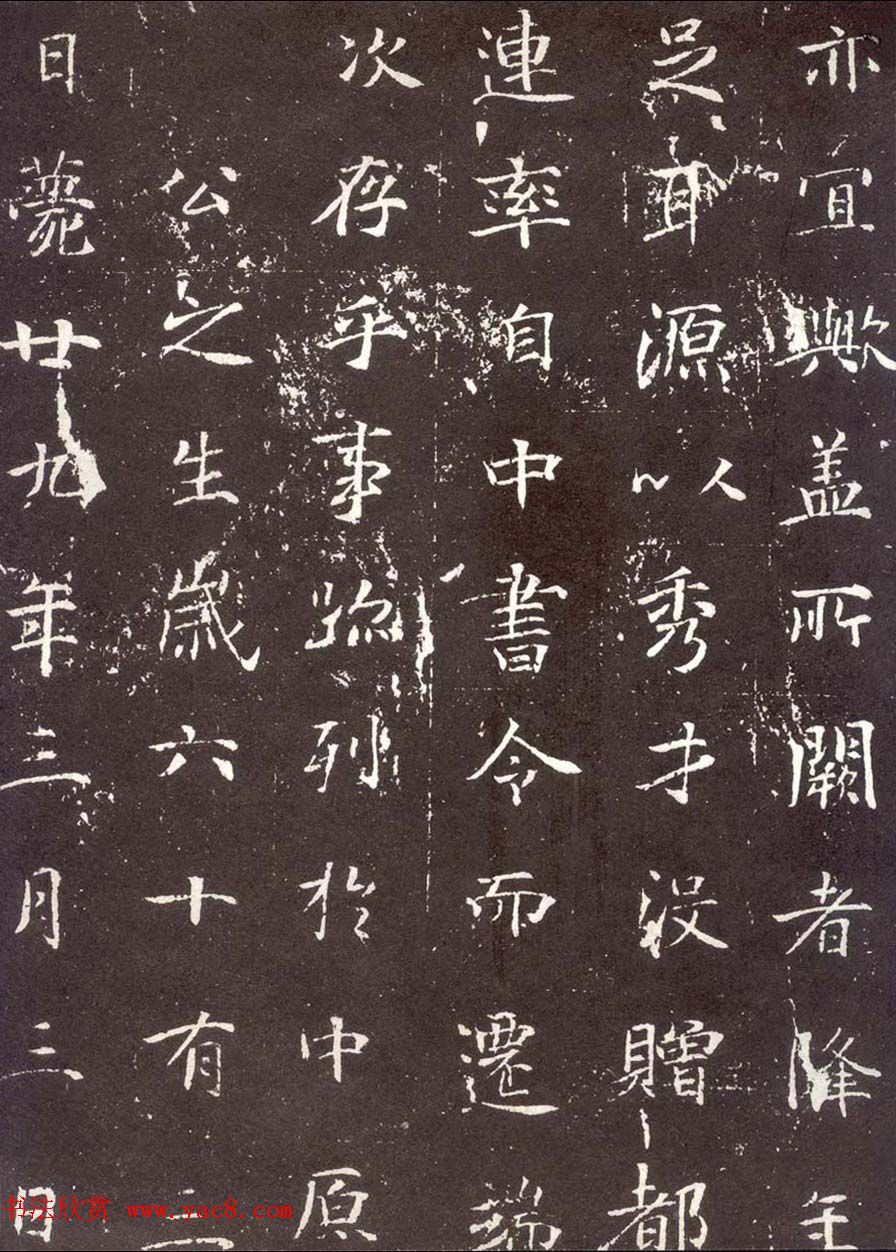 亦宜歟盖所闕者降年
足耳源以秀才没贈都
連率自中書令而遷端
次存乎事跡列於中原
公之生歲六十有
日薨廿九年三月三日
书法欣赏 www.yac8.com